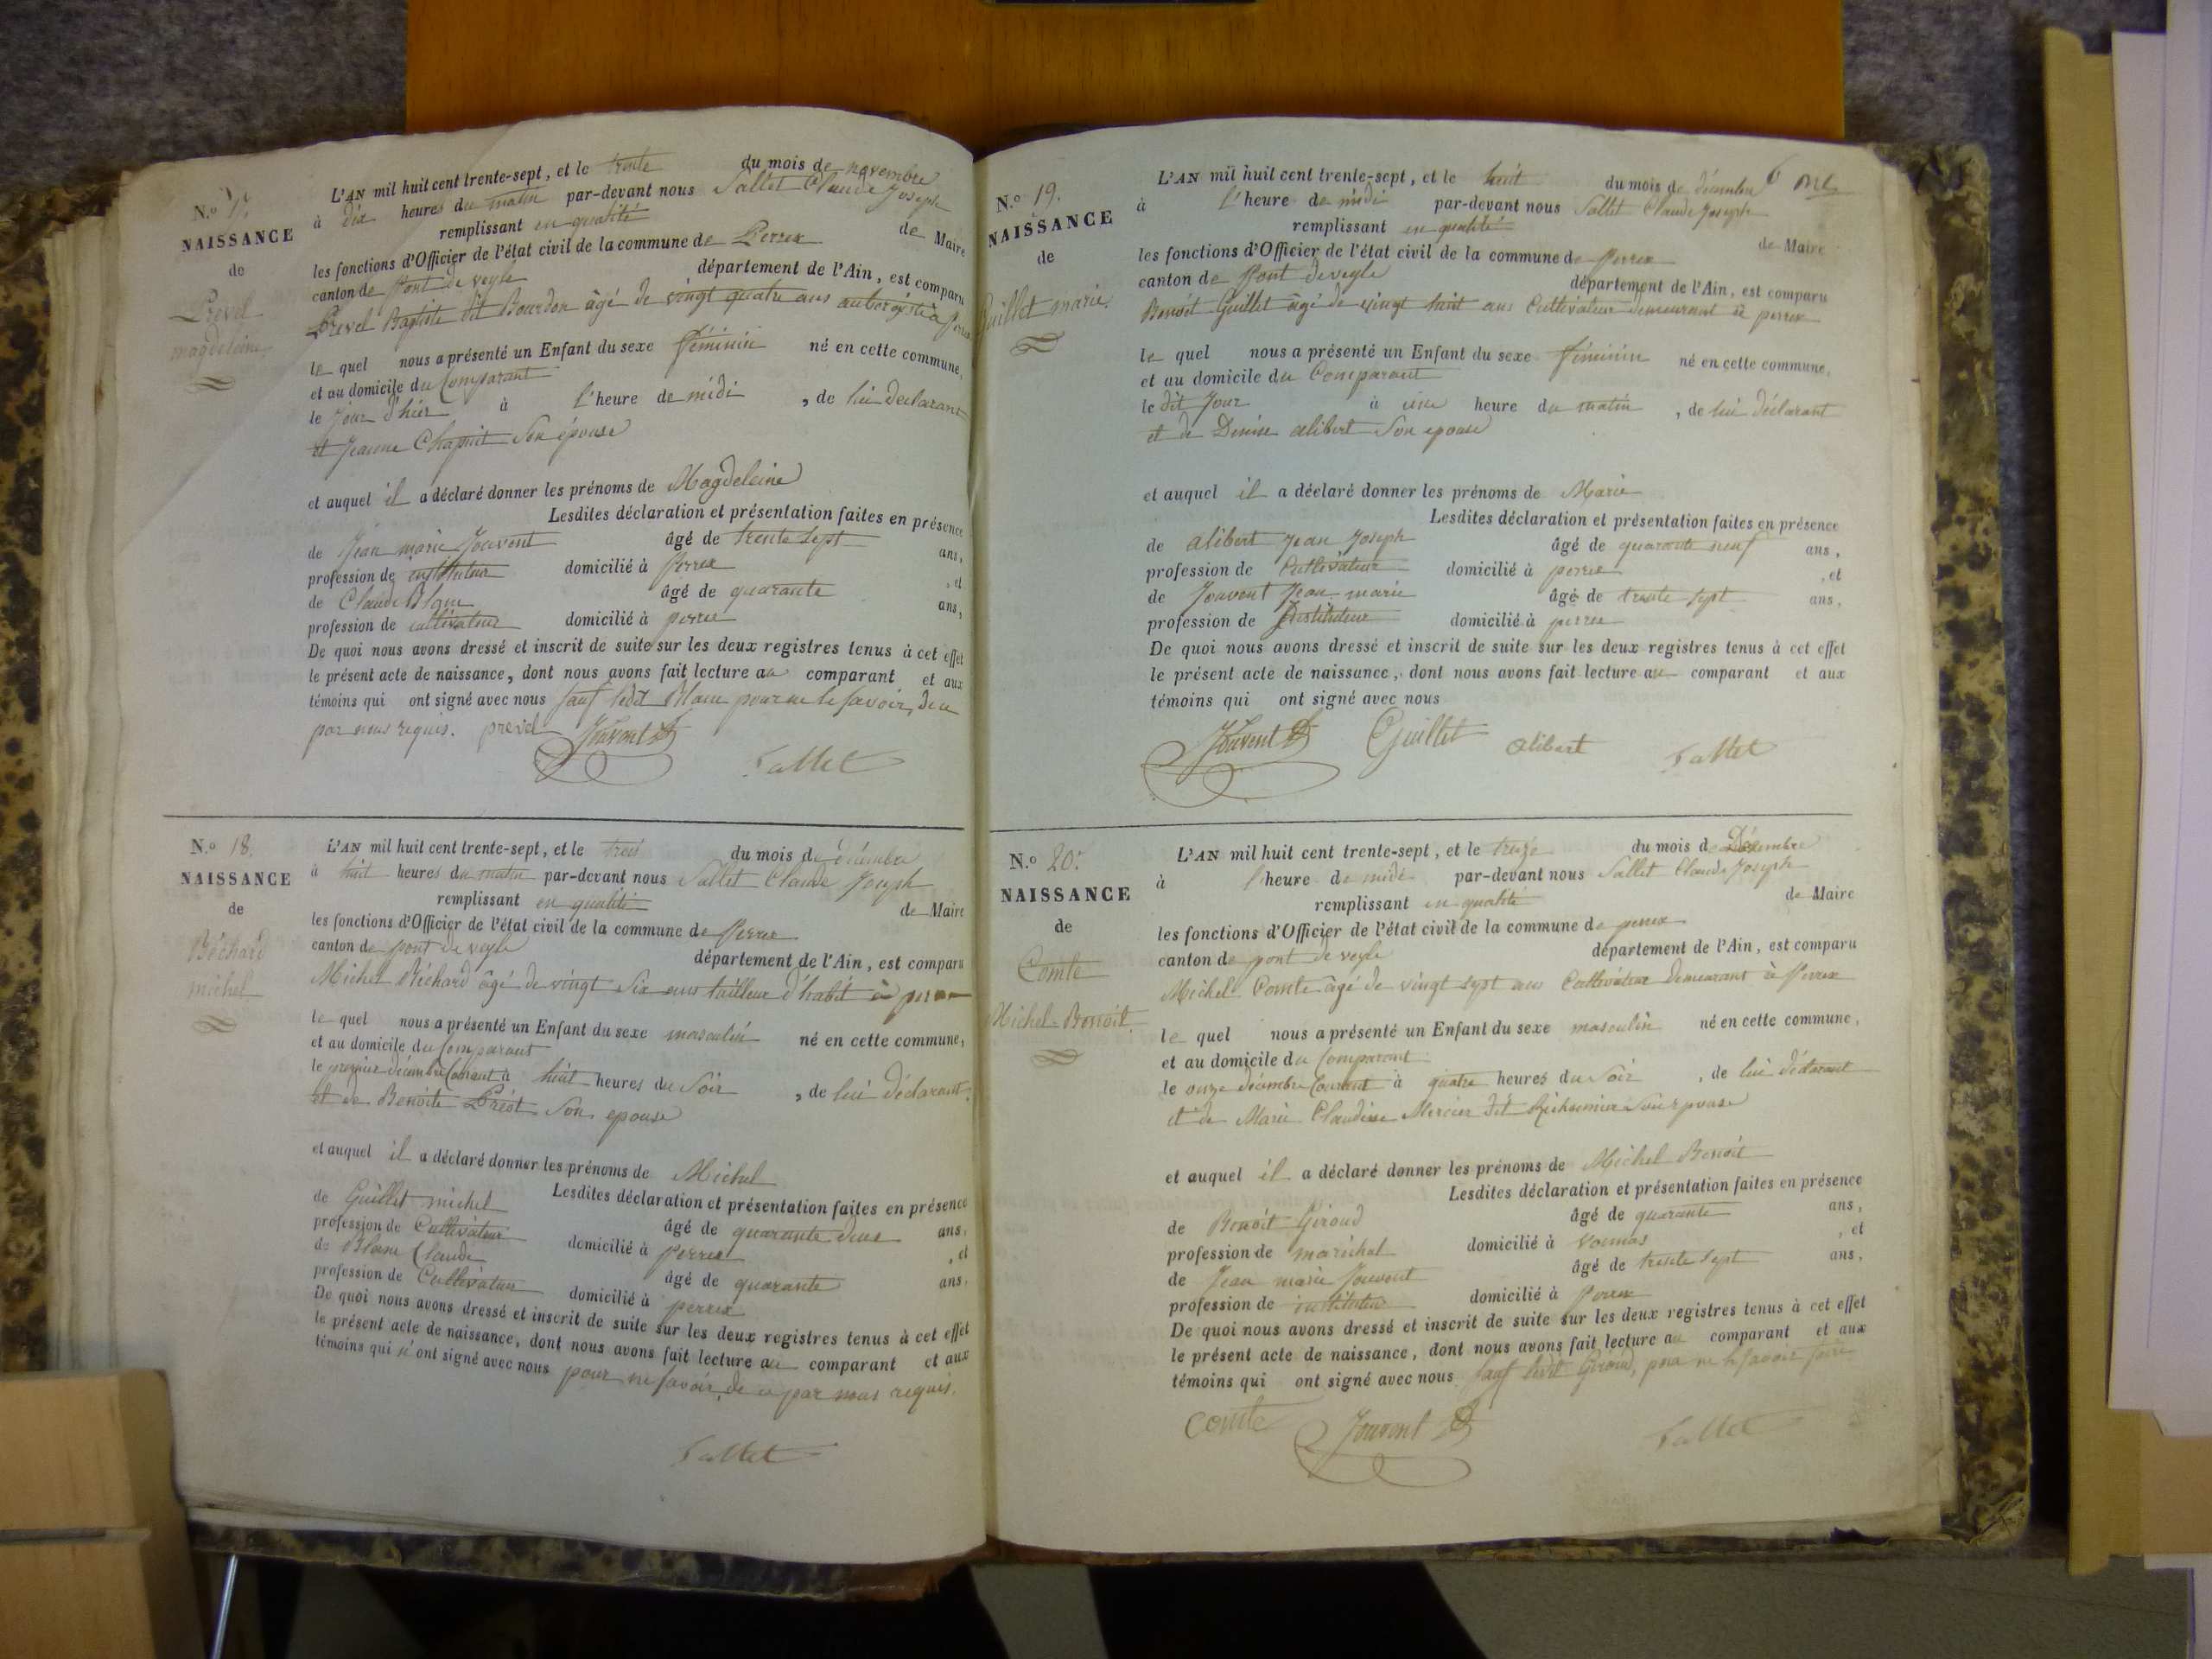 N.º 17.
NAISSANCE
de
Prevel
magdeleine
L'AN mil huit cent trente-sept, et le trente du mois de novembre
à dix heures du matin par-devant nous Sallet Claude Joseph
remplissant en qualité de Maire
les fonctions d'Officier de l'état civil de la commune de Perrex
canton de Pont de veyle département de l'Ain, est comparu
Prevel Baptiste dit Bourdon âgé de vingt quatre ans aubergiste à Perrex
le quel nous a présenté un Enfant du sexe féminin né en cette commune,
et au domicile du Comparant
le jour d'hier à l'heure de midi, de lui declarant
et Jeanne Chapuit Son épouse
et auquel il a déclaré donner les prénoms de Magdeleine
Lesdites déclaration et présentation faites en présence
de Jean marie Jouvent âgé de trente Sept ans,
profession de instituteur domicilié à Perrex, et
de Claude Blanc âgé de quarante ans,
profession de cultivateur domicilié à perrex
De quoi nous avons dressé et inscrit de suite sur les deux registres tenus à cet effet
le présent acte de naissance, dont nous avons fait lecture au comparant et aux
témoins qui ont signé avec nous Sauf ledit Blanc pour ne le savoir, de ce
par nous requis. prevel Jouvent Sallet
N.º 18.
NAISSANCE
de
Béchard
michel
L'AN mil huit cent trente-sept, et le trois du mois de décembre
à huit heures du matin par-devant nous Sallet Claude Joseph
remplissant en qualité de Maire
les fonctions d'Officier de l'état civil de la commune de Perrex
canton de pont de veyle département de l'Ain, est comparu
Michel Béchard âgé de vingt Six ans tailleur d'habit à perrex
le quel nous a présenté un Enfant du sexe masculin né en cette commune,
et au domicile du Comparant
le premier décembre Courant à huit heures du Soir, de lui déclarant
et de Benoite Préot Son epouse
et auquel il a déclaré donner les prénoms de Michel
Lesdites déclaration et présentation faites en présence
de Guillet michel âgé de quarante deux ans,
profession de Cultivateur domicilié à perrex, et
de Blanc Claude âgé de quarante ans,
profession de Cultivateur domicilié à perrex
De quoi nous avons dressé et inscrit de suite sur les deux registres tenus à cet effet
le présent acte de naissance, dont nous avons fait lecture au comparant et aux
témoins qui n'ont signé avec nous pour ne savoir, de ce par nous requis.
Sallet
N.º 19.
NAISSANCE
de
Guillet marie
L'AN mil huit cent trente-sept, et le huit du mois de décembre 6
à l'heure de midi par-devant nous Sallet Claude Joseph
remplissant en qualité de Maire
les fonctions d'Officier de l'état civil de la commune de Perrex
canton de Pont de veyle département de l'Ain, est comparu
Benoit Guillet âgé de vingt huit ans Cultivateur demeurant à perrex
le quel nous a présenté un Enfant du sexe féminin né en cette commune,
et au domicile du Comparant
le dit Jour à une heure du matin, de lui déclarant
et de Denise alibert Son epouse
et auquel il a déclaré donner les prénoms de Marie
Lesdites déclaration et présentation faites en présence
de alibert Jean Joseph âgé de quarante neuf ans,
profession de Cultivateur domicilié à perrex, et
de Jouvent Jean marie âgé de trente sept ans,
profession de Instituteur domicilié à perrex
De quoi nous avons dressé et inscrit de suite sur les deux registres tenus à cet effet
le présent acte de naissance, dont nous avons fait lecture au comparant et aux
témoins qui ont signé avec nous
Jouvent Guillet alibert Sallet
N.º 20.
NAISSANCE
de
Comte
Michel Benoit
L'AN mil huit cent trente-sept, et le treize du mois de Décembre
à l'heure de midi par-devant nous Sallet Claude Joseph
remplissant en qualité de Maire
les fonctions d'Officier de l'état civil de la commune de perrex
canton de pont de veyle département de l'Ain, est comparu
Michel Comte âgé de vingt sept ans Cultivateur Demeurant à Perrex
le quel nous a présenté un Enfant du sexe masculin né en cette commune,
et au domicile du Comparant
le onze décembre Courant à quatre heures du Soir, de lui déclarant
et de Marie Claudine Mercier dit Son epouse
et auquel il a déclaré donner les prénoms de Michel Benoit
Lesdites déclaration et présentation faites en présence
de Benoit Giroud âgé de quarante ans,
profession de maréchal domicilié à vonnas, et
de Jean marie Jouvent âgé de trente sept ans,
profession de instituteur domicilié à Perrex
De quoi nous avons dressé et inscrit de suite sur les deux registres tenus à cet effet
le présent acte de naissance, dont nous avons fait lecture au comparant et aux
témoins qui ont signé avec nous Sauf ledit Giroud, pour ne le savoir faire
Comte Jouvent Sallet